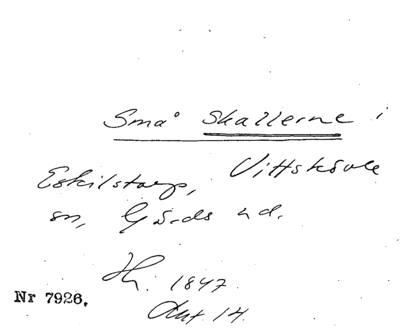 Små skallerne i
Eskilstorp, Vittskövle
sn, Gärds hd.
1847
Nr 7926.
Ant. 14.